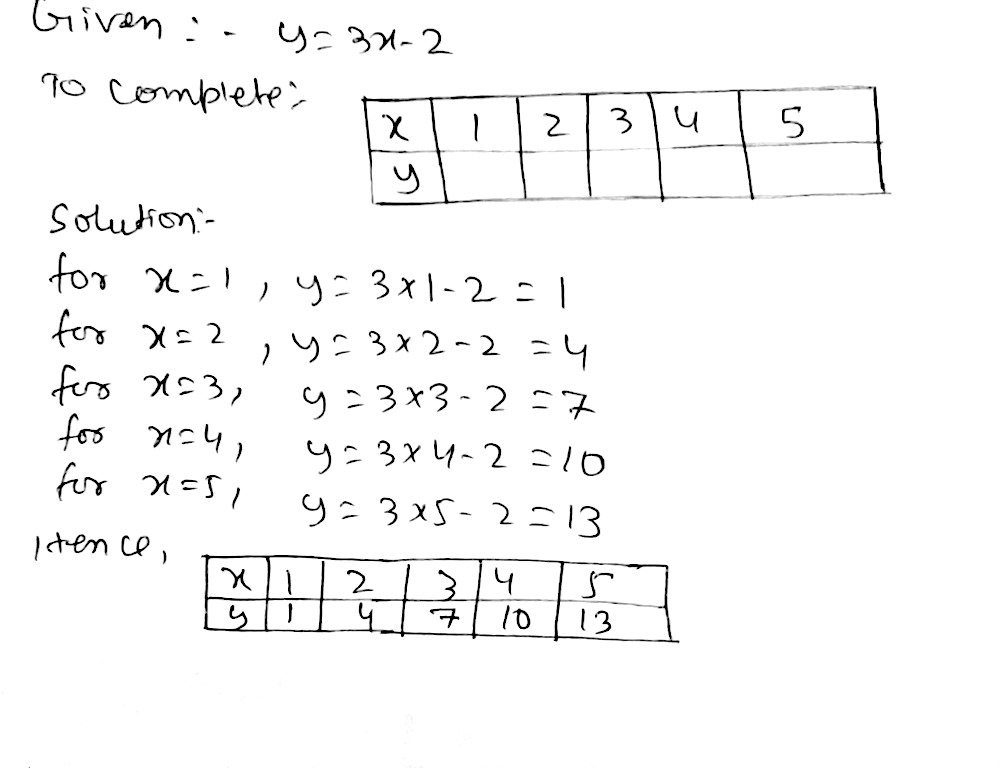 Given :- y=3x-2
To complete:-
x 1 2 3 4 5
y
Solution:-
for x=1, y=3×1-2=1
for x=2, y=3×2-2=4
for x=3, y=3×3-2=7
for x=4, y=3×4-2=10
for x=5, y=3×5-2=13
Hence,
x 1 2 3 4 5
y 1 4 7 10 13